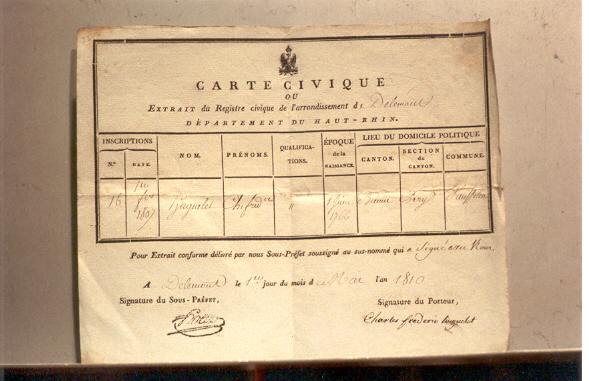 CARTE CIVIQUE
OU
EXTRAIT du Registre civique de l'arrondissement de Delémont
DÉPARTEMENT DU HAUT-RHIN.
INSCRIPTIONS
N.º
DATE.
NOM.
PRÉNOMS.
QUALIFICA-
TIONS.
ÉPOQUE
de la
NAISSANCE.
LIEU DU DOMICILE POLITIQUE
CANTON.
SECTION
de
CANTON.
COMMUNE.
16
1809
"
Pour Extrait conforme délivré par nous Sous-Préfet soussigné au sus-nommé qui a Signé avec Nous.
A Delémont le 1er jour du mois de Mai l'an 1810
Signature du Sous-PRÉFET,
Signature du Porteur,
Charles frederic